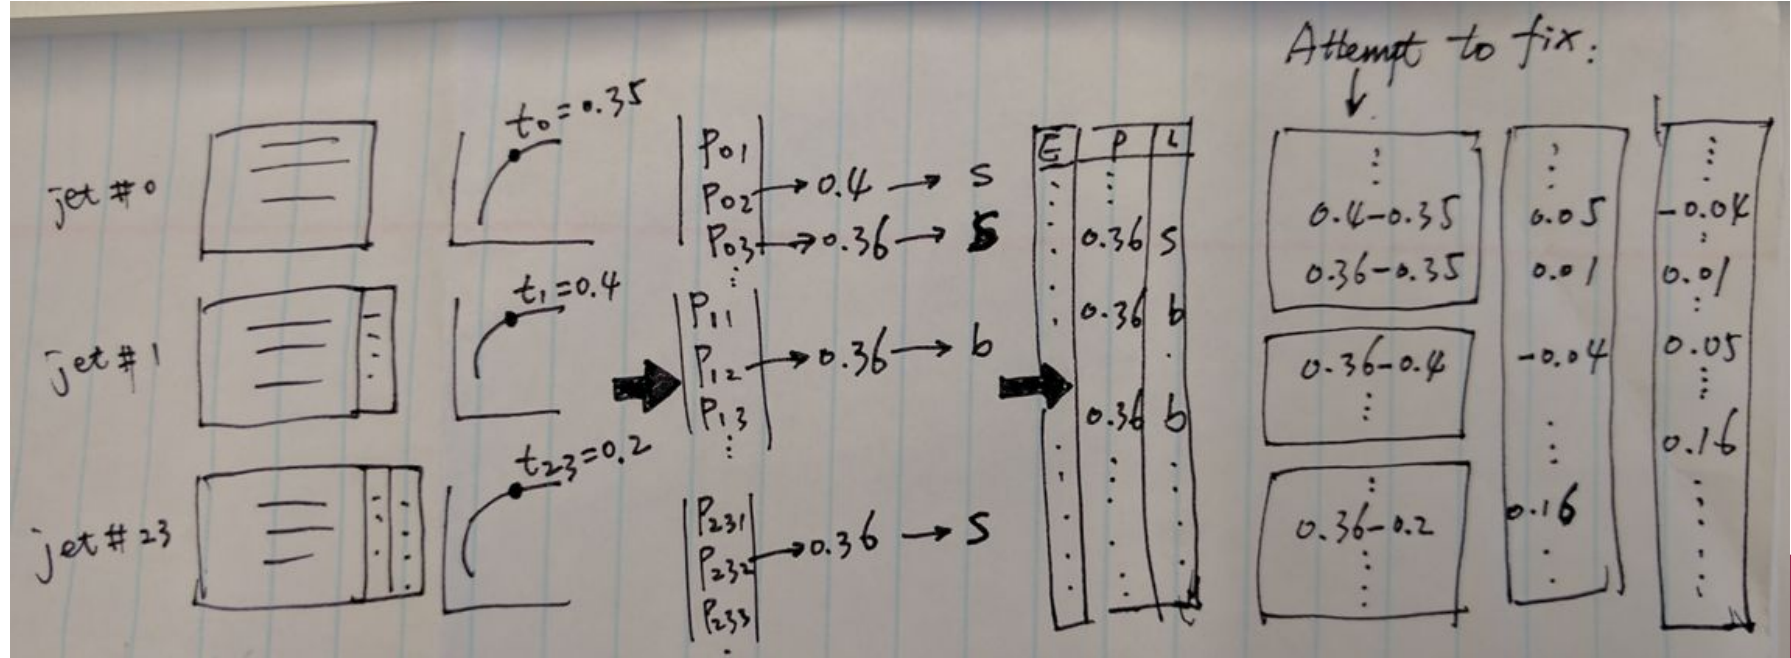 Attempt to fix:
jet #0
t₀=0.35
P₀₁
P₀₂ → 0.4 → s
P₀₃ → 0.36 → s
⋮
jet #1
t₁=0.4
P₁₁
P₁₂ → 0.36 → b
P₁₃
⋮
jet #23
t₂₃=0.2
P₂₃₁
P₂₃₂ → 0.36 → s
P₂₃₃
E P L
0.36 s
0.36 b
0.36 b
0.4-0.35
0.36-0.35
0.36-0.4
0.36-0.2
0.05
0.01
-0.04
0.16
-0.04
0.01
0.05
0.16